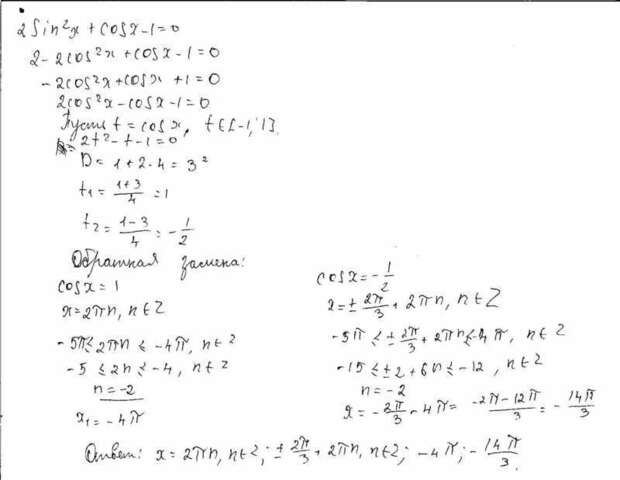 2sin²x + cosx - 1 = 0
2 - 2cos²x + cosx - 1 = 0
- 2cos²x + cosx + 1 = 0
2cos²x - cosx - 1 = 0
Пусть t = cosx, t∈[-1;1].
2t² - t - 1 = 0
D = 1 + 2·4 = 3²
t₁ = (1+3)/4 = 1
t₂ = (1-3)/4 = -1/2
Обратная замена:
cosx = 1
x = 2πn, n∈Z
-5π ≤ 2πn ≤ -4π, n∈Z
-5 ≤ 2n ≤ -4, n∈Z
n = -2
x₁ = -4π
cosx = -1/2
x = ± 2π/3 + 2πn, n∈Z
-5π ≤ ± 2π/3 + 2πn ≤ -4π, n∈Z
-15 ≤ ±2 + 6n ≤ -12, n∈Z
n = -2
x = -2π/3 - 4π = (-2π-12π)/3 = -14π/3
Ответ: x = 2πn, n∈Z; ± 2π/3 + 2πn, n∈Z; -4π; -14π/3.